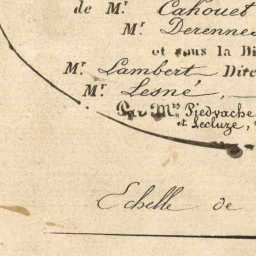 de Mr. Cahouet
Mr. Derenne
et sous la Di
Mr. Lambert Dire
Mr. Lesné,
Par Mrs. Piedvache
et Lecluze,
Echelle de